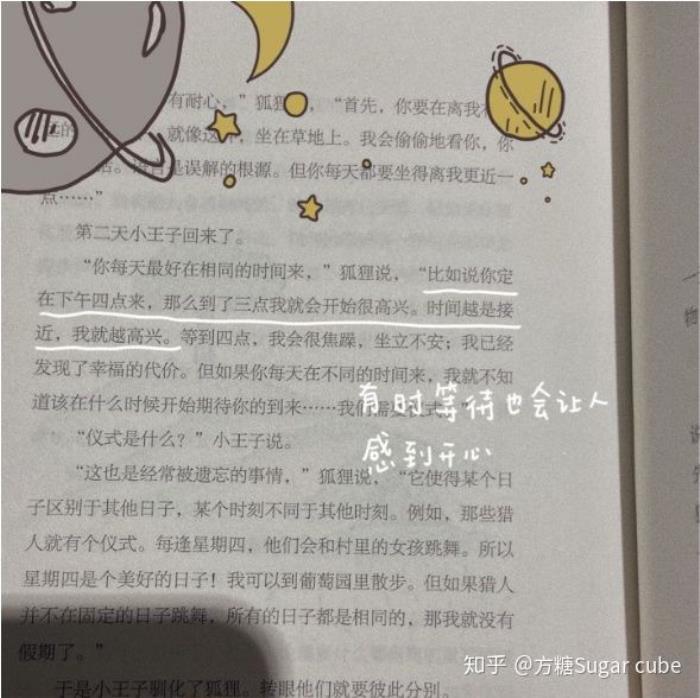 有耐心，”狐狸
，“首先，你要在离我
就像这样，坐在草地上。我会偷偷地看你，你
是误解的根源。但你每天都要坐得离我更近一
点……”
第二天小王子回来了。
“你每天最好在相同的时间来，”狐狸说，“比如说你定
在下午四点来，那么到了三点我就会开始很高兴。时间越是接
近，我就越高兴。等到四点，我会很焦躁，坐立不安；我已经
发现了幸福的代价。但如果你每天在不同的时间来，我就不知
道该在什么时候开始期待你的到来……我们需要仪式。”
有时等待也会让人
感到开心
“仪式是什么？”小王子说。
“这也是经常被遗忘的事情，”狐狸说，“它使得某个日
子区别于其他日子，某个时刻不同于其他时刻。例如，那些猎
人就有个仪式。每逢星期四，他们会和村里的女孩跳舞。所以
星期四是个美好的日子！我可以到葡萄园里散步。但如果猎人
并不在固定的日子跳舞，所有的日子都是相同的，那我就没有
假期了。”
于是小王子驯化了狐狸。转眼他们就要彼此分别。
物
知乎 @方糖Sugar cube